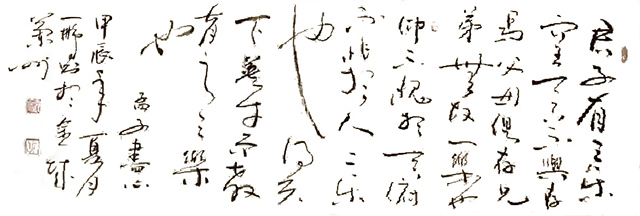 君子有三樂
而王天下不與存
焉父母俱存兄
弟無故一樂也
仰不愧於天俯
不怍於人二樂
也得天
下英才而教
育之三樂
也
孟子盡心
甲辰年夏月
於金城
蘭州